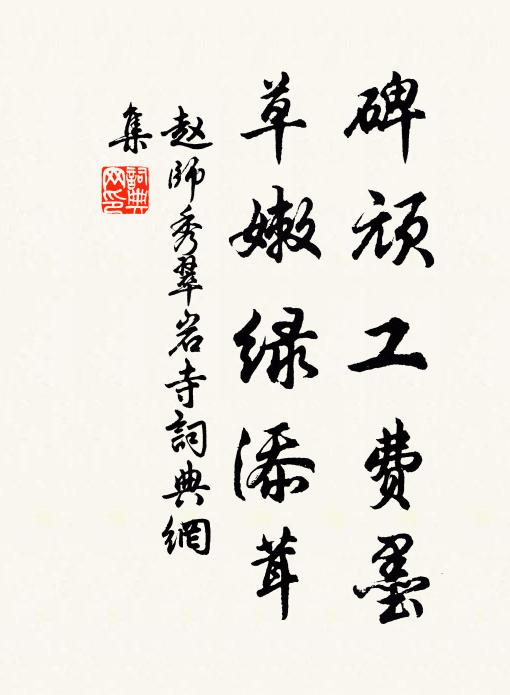 碑顽工费墨
草嫩绿添茸
赵师秀翠岩寺詞典網
集
詞典网印